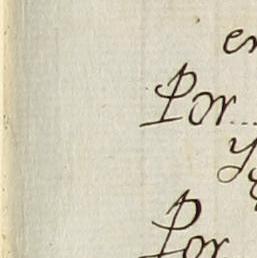 en
Por...
y
Por